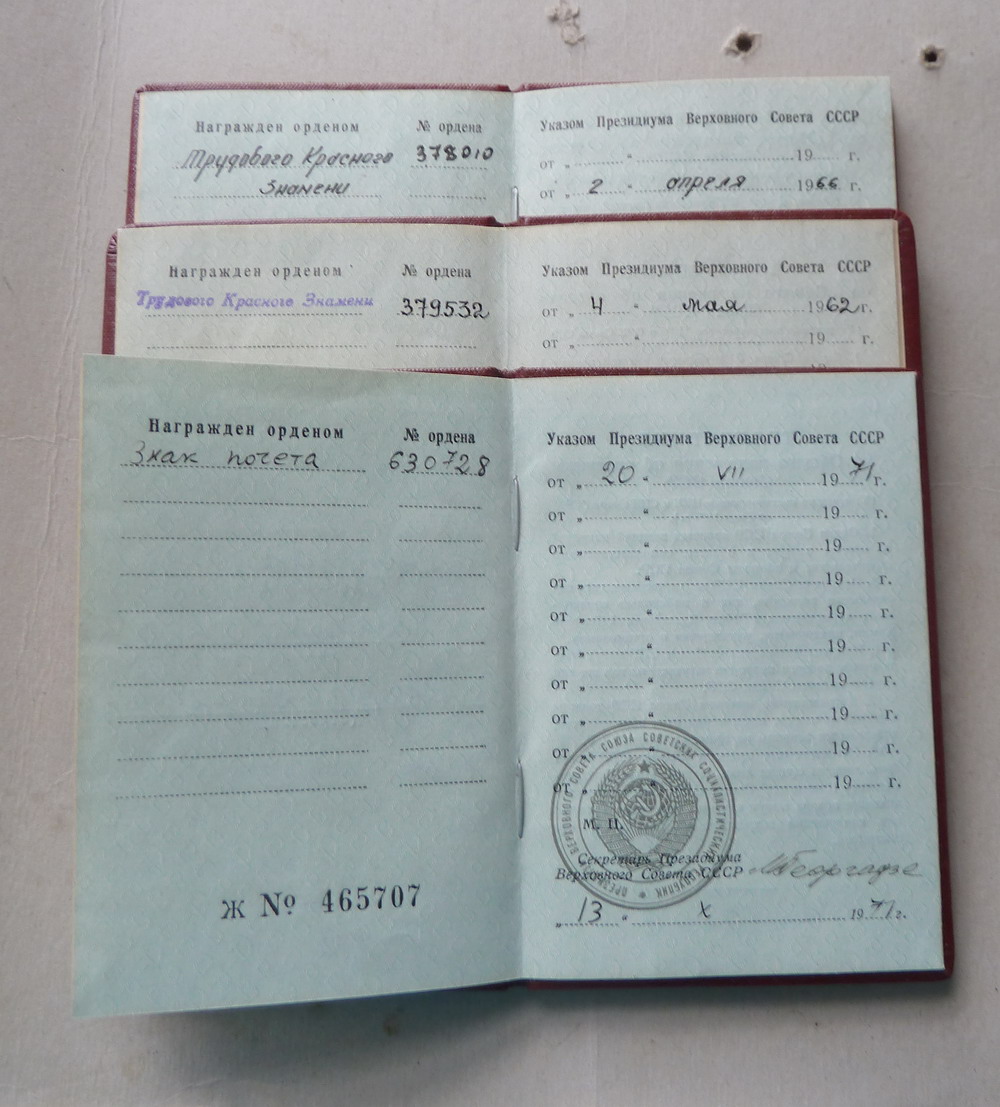 Награжден орденом № ордена
Трудового Красного 378010
Знамени
Указом Президиума Верховного Совета СССР
от „ “ 19 г.
от „ 2 “ апреля 1966 г.
Награжден орденом № ордена
Трудового Красного Знамени 379532
Указом Президиума Верховного Совета СССР
от „ 4 “ мая 1962 г.
от „ “ 19 г.
Награжден орденом № ордена
Знак почета 630728
Ж № 465707
Указом Президиума Верховного Совета СССР
от „ 20 “ VII 1971 г.
от „ “ 19 г.
от „ “ 19 г.
от „ “ 19 г.
от „ “ 19 г.
от „ “ 19 г.
от „ “ 19 г.
от „ “ 19 г.
от „ “ 19 г.
от „ “ 19 г.
ВЕРХОВНОГО СОВЕТА СОЮЗА СОВЕТСКИХ СОЦИАЛИСТИЧЕСКИХ
М. П.
Секретарь Президиума
Верховного Совета СССР Георгадзе
„ 13 “ X 1971 г.